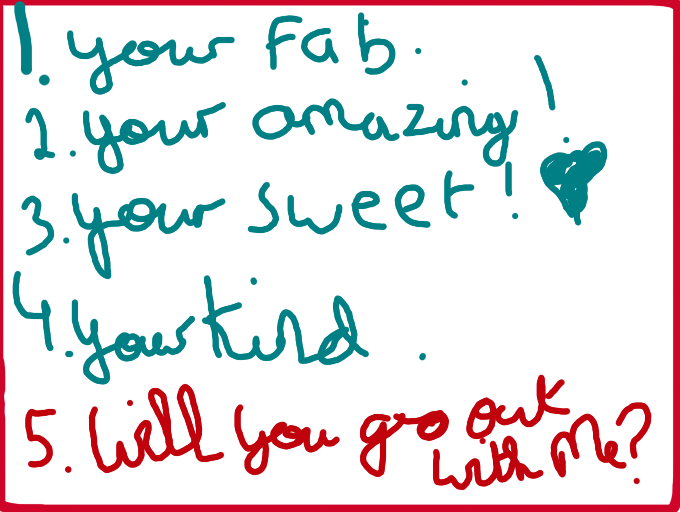 1. your Fab.
2. your amazing!
3. your sweet!
4. your kind.
5. Will you go out
with Me?